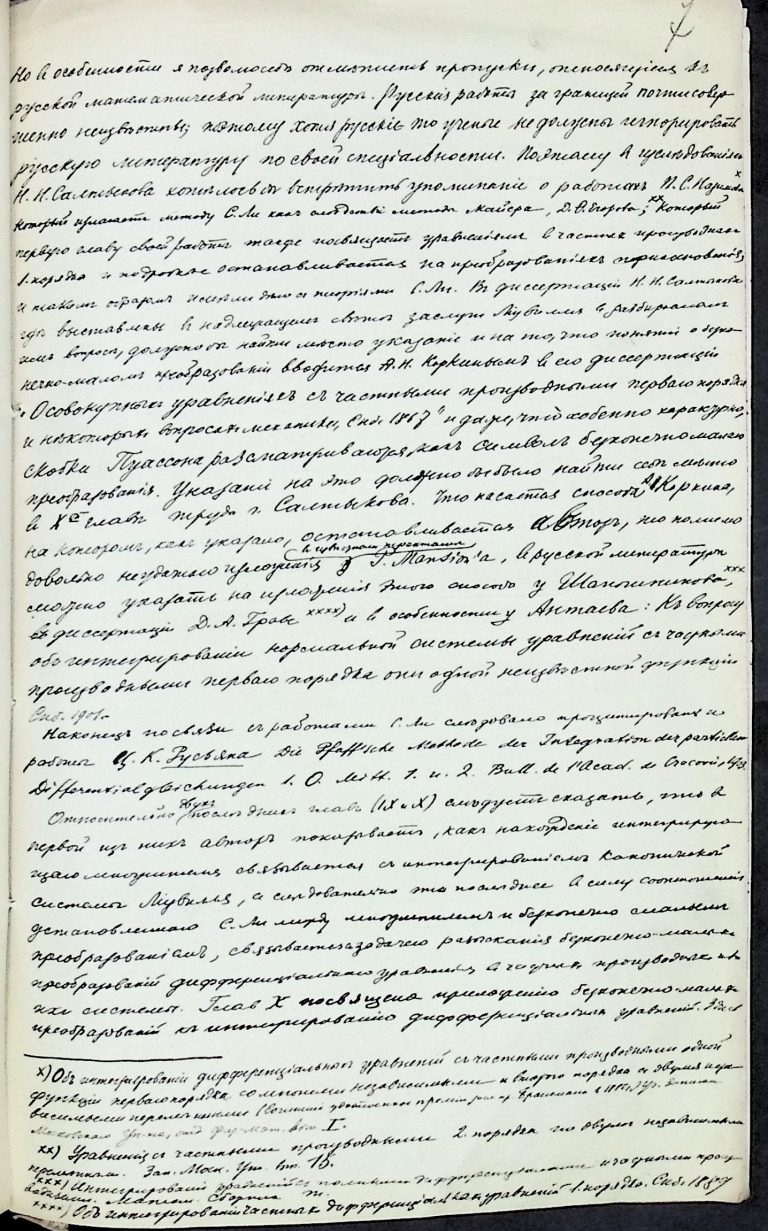 7
Но въ особенности я позволю себѣ отмѣтить пропуски, относящіеся къ
русской математической литературѣ. Русскія работы за границей почти совер-
шенно неизвѣстны; поэтому хотя русскіе то ученые не должны игнорировать
русскую литературу по своей спеціальности. Поэтому въ изслѣдованіи
Н. Н. Салтыкова хотѣлось бы встрѣтить упоминаніе о работахъ П. С. Назимова x
который излагаетъ методу С. Ли какъ слѣдствіе метода Майера, Д. Ѳ. Егорова xx), который
первую главу своей работы также посвящаетъ уравненіямъ въ частныхъ производныхъ
1. порядка и подробно останавливается на преобразованіяхъ прикосновенія
и такимъ образомъ теоріями С. Ли. Въ диссертаціи Н. Н. Салтыкова
гдѣ выставлены въ надлежащемъ свѣтѣ заслуги Ліувилля въ разбираемомъ
имъ вопросѣ, должно бы найти мѣсто указаніе и на то, что понятіе о безко-
нечно-маломъ преобразованіи вводится А. Н. Коркинымъ въ его диссертаціи
"О совокупныхъ уравненіяхъ съ частными производными перваго порядка
и нѣкоторыхъ вопросахъ механики, Спб. 1867" и даже, что особенно характерно,
скобки Пуассона разсматриваются, какъ символъ безконечно малаго
преобразованія. Указаніе на это должно бы было найти себѣ мѣсто
въ X-ой главѣ труда г. Салтыкова. Что касается способа А. Коркина,
на которомъ, какъ указано, останавливается авторъ, то помимо
довольно неудачнаго изложенія въ извѣстномъ P. Mansion'a, въ русской литературѣ
можно указать на изложенія этого способа у Шапошникова xxx
въ диссертаціи Д. А. Граве xxxx) и въ особенности у Антаева: Къ вопросу
объ интегрированіи нормальной системы уравненій съ частными
производными перваго порядка одной неизвѣстной функціи
Спб. 1901.
Наконецъ по связи съ работами С. Ли слѣдовало процитировать и
работы Ц. К. Русьяна Die Pfaff'sche Methode der Integration der partiellen
Differentialgleichungen 1. O. Mitt. 1. u. 2. Bull. de l'Acad. de Cracovie,
Относительно двухъ послѣднихъ главъ (IX и X) слѣдуетъ сказать, что въ
первой изъ нихъ авторъ показываетъ, какъ нахожденіе интегрирую-
щаго множителя связывается съ интегрированіемъ канонической
системы Ліувилля, а слѣдовательно это послѣднее въ силу соотношенія
установленнаго С. Ли между множителемъ и безконечно малымъ
преобразованіемъ, связывается задачею разысканія безконечно-малыхъ
преобразованій дифференціальныхъ уравненій въ частныхъ производныхъ или
ихъ системъ. Глава X посвящена приложенію безконечно-малыхъ
преобразованій къ интегрированію дифференціальныхъ уравненій. Здѣсь
x) Объ интегрированіи дифференціальныхъ уравненій съ частными производными одной
функціи перваго порядка со многими независимыми и второго порядка съ двумя неза-
висимыми перемѣнными
Московскаго Ун-та, отд. физ.-мат. вып. I.
xx) Уравненія съ частными производными 2. порядка по двумъ независимымъ
перемѣннымъ. Зап. Моск. Ун. вып. 15.
xxx) Интегрированіе уравненій съ полными дифференціалами и частными произ-
водными. Матем. Сборникъ т.
xxxx) Объ интегрированіи частныхъ дифференціальныхъ уравненій 1. порядка. Спб. 1889